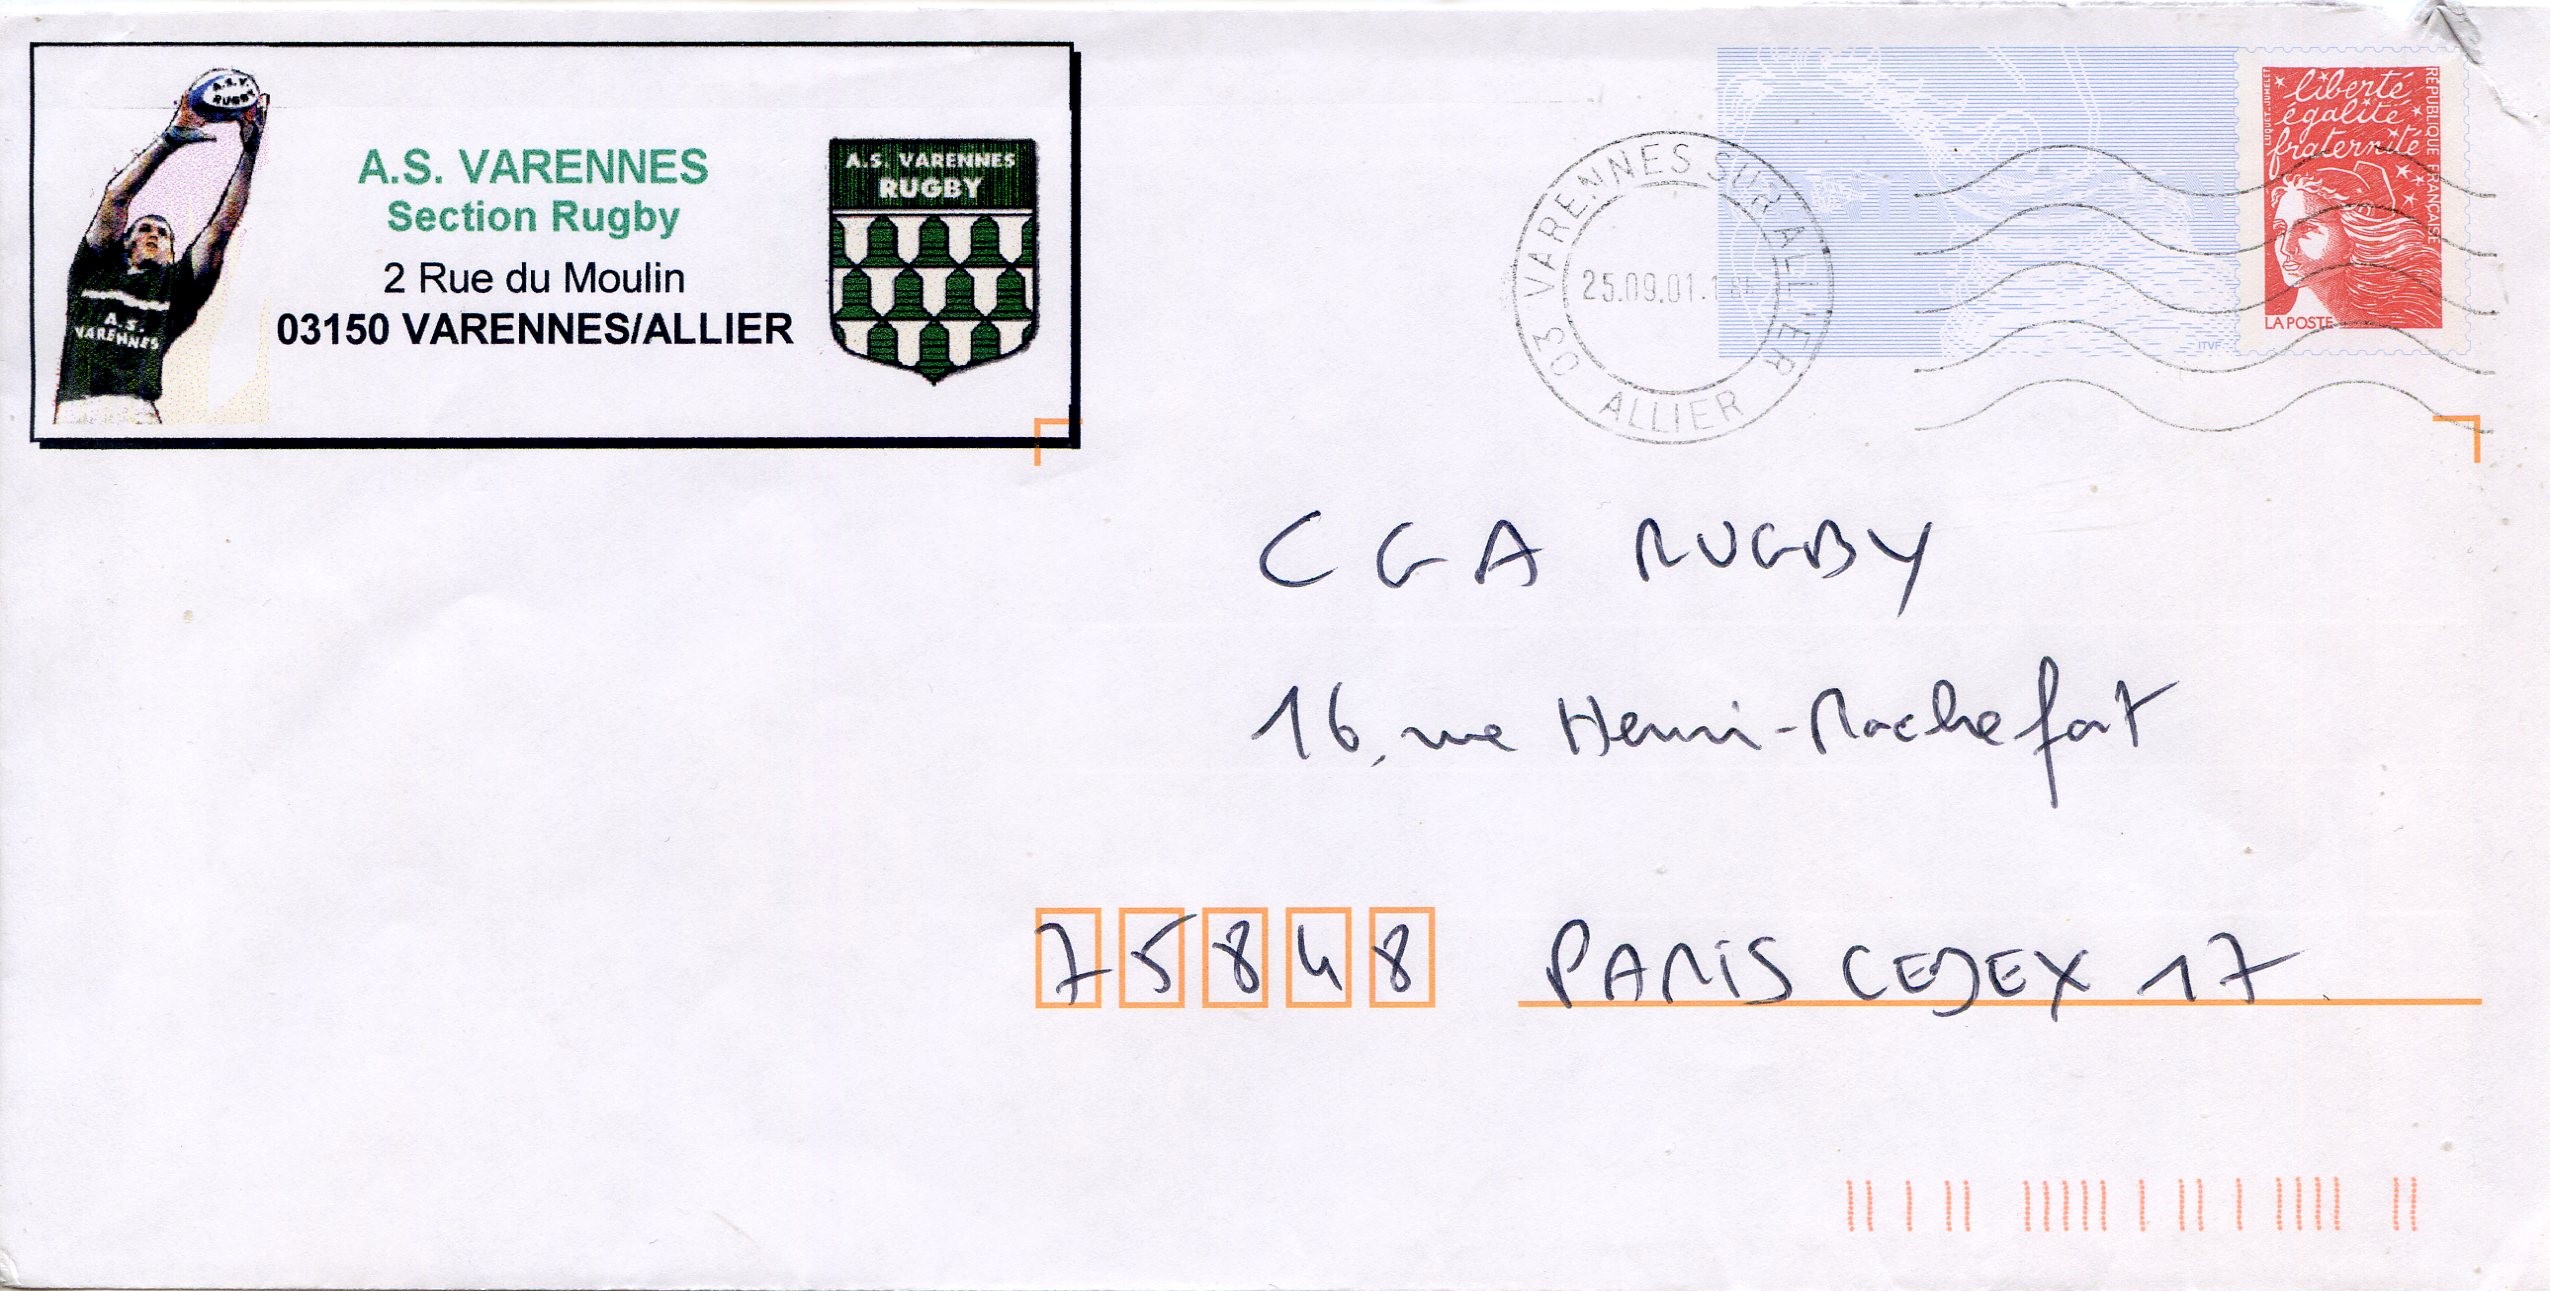 A.S.V.
RUGBY
A.S.
VARENNES
A.S. VARENNES
Section Rugby
2 Rue du Moulin
03150 VARENNES/ALLIER
A.S. VARENNES
RUGBY
03 VARENNES SUR ALLIER
25.09.01
ALLIER
liberté
égalité
fraternité
RÉPUBLIQUE FRANÇAISE
LUQUET-JUMELET
LA POSTE
ITVF
CGA RUGBY
16, rue Henri-Rochefort
75848 PARIS CEDEX 17